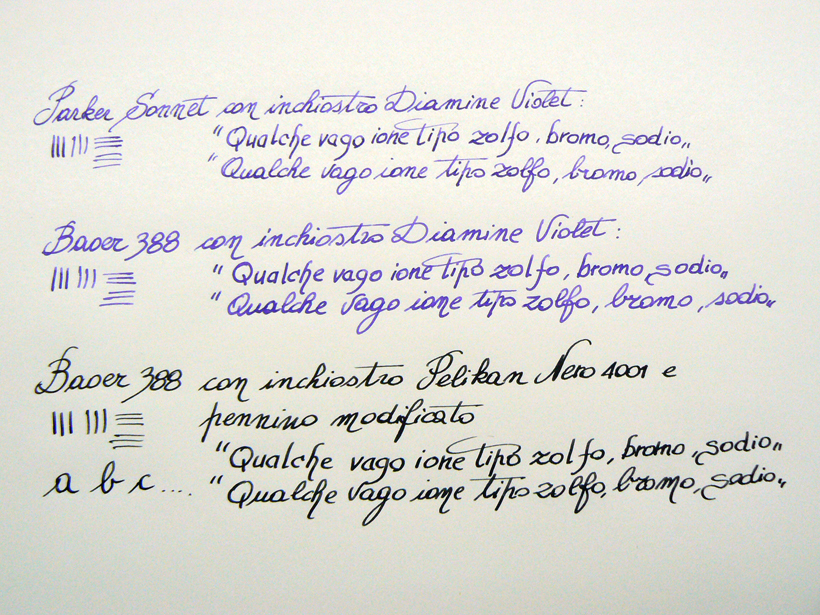 Parker Sonnet con inchiostro Diamine Violet :
" Qualche vago ione tipo zolfo, bromo, sodio „
" Qualche vago ione tipo zolfo, bromo, sodio „
Baoer 388 con inchiostro Diamine Violet :
" Qualche vago ione tipo zolfo, bromo, sodio „
" Qualche vago ione tipo zolfo, bromo, sodio „
Baoer 388 con inchiostro Pelikan Nero 4001 e
pennino modificato
" Qualche vago ione tipo zolfo, bromo, sodio „
a b c .... " Qualche vago ione tipo zolfo, bromo, sodio „